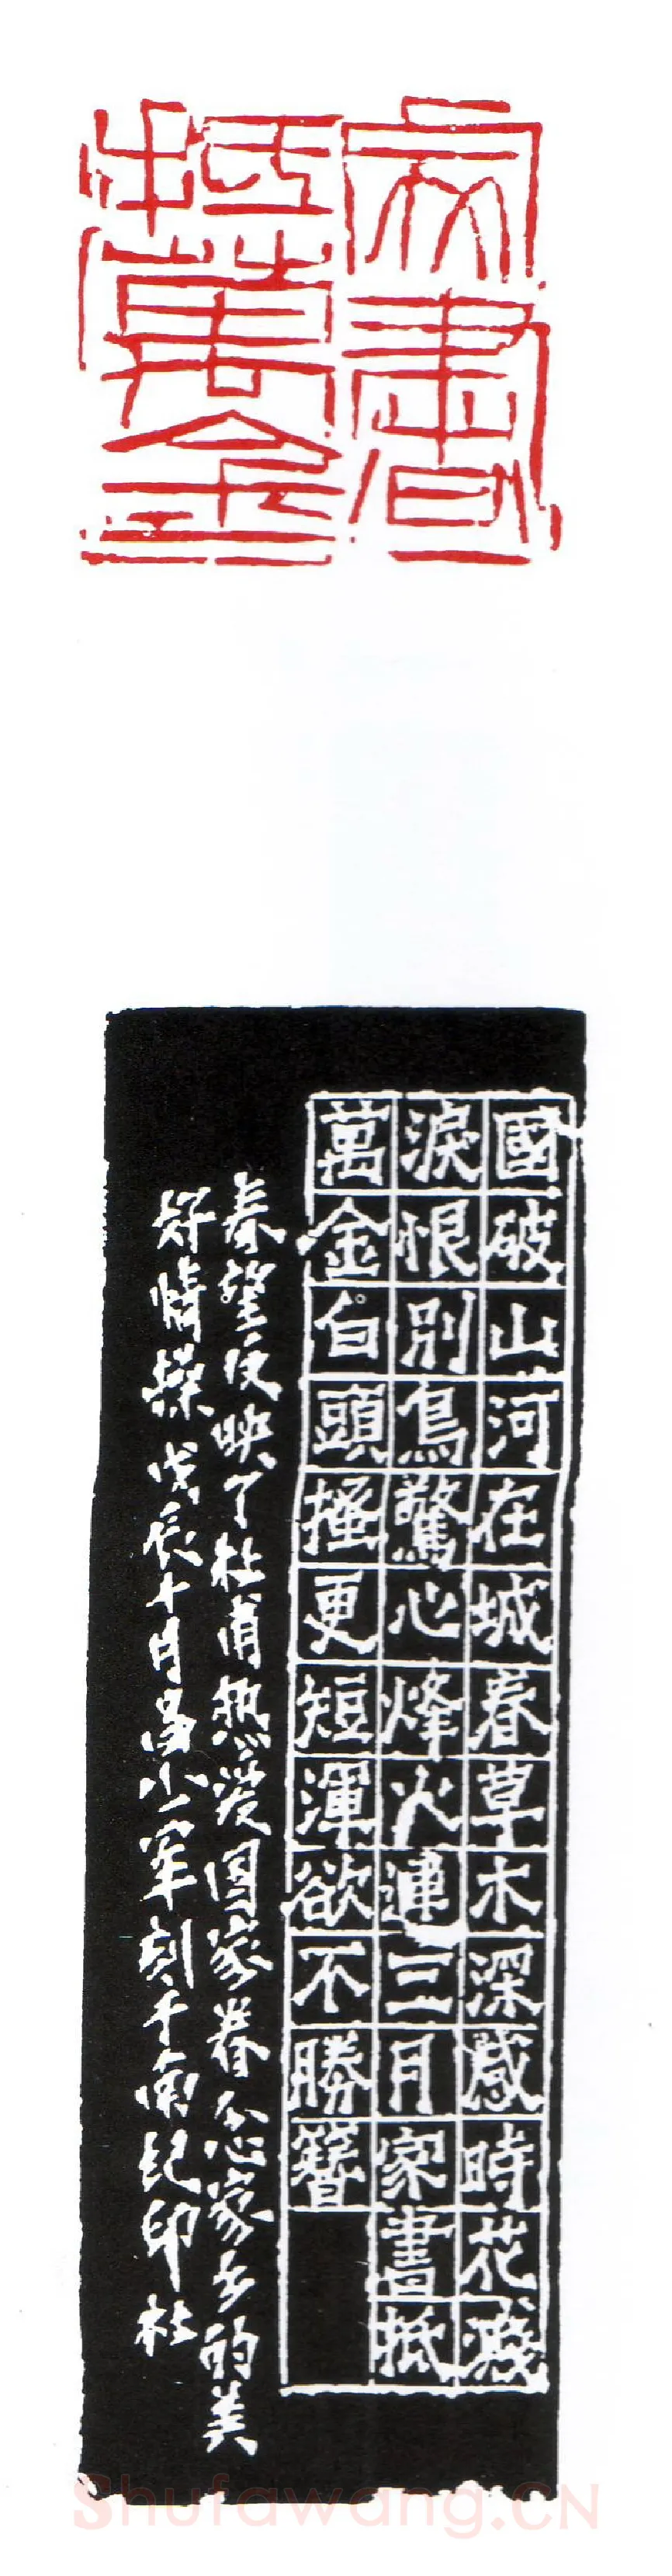 家書
抵萬金
國破山河在城春草木深感時花濺
淚恨別鳥驚心烽火連三月家書抵
萬金白頭搔更短渾欲不勝簪
春望反映了杜甫热爱国家眷念家乡的美
好情操戊辰十月小军刻于南纪印社
Shufawang.CN